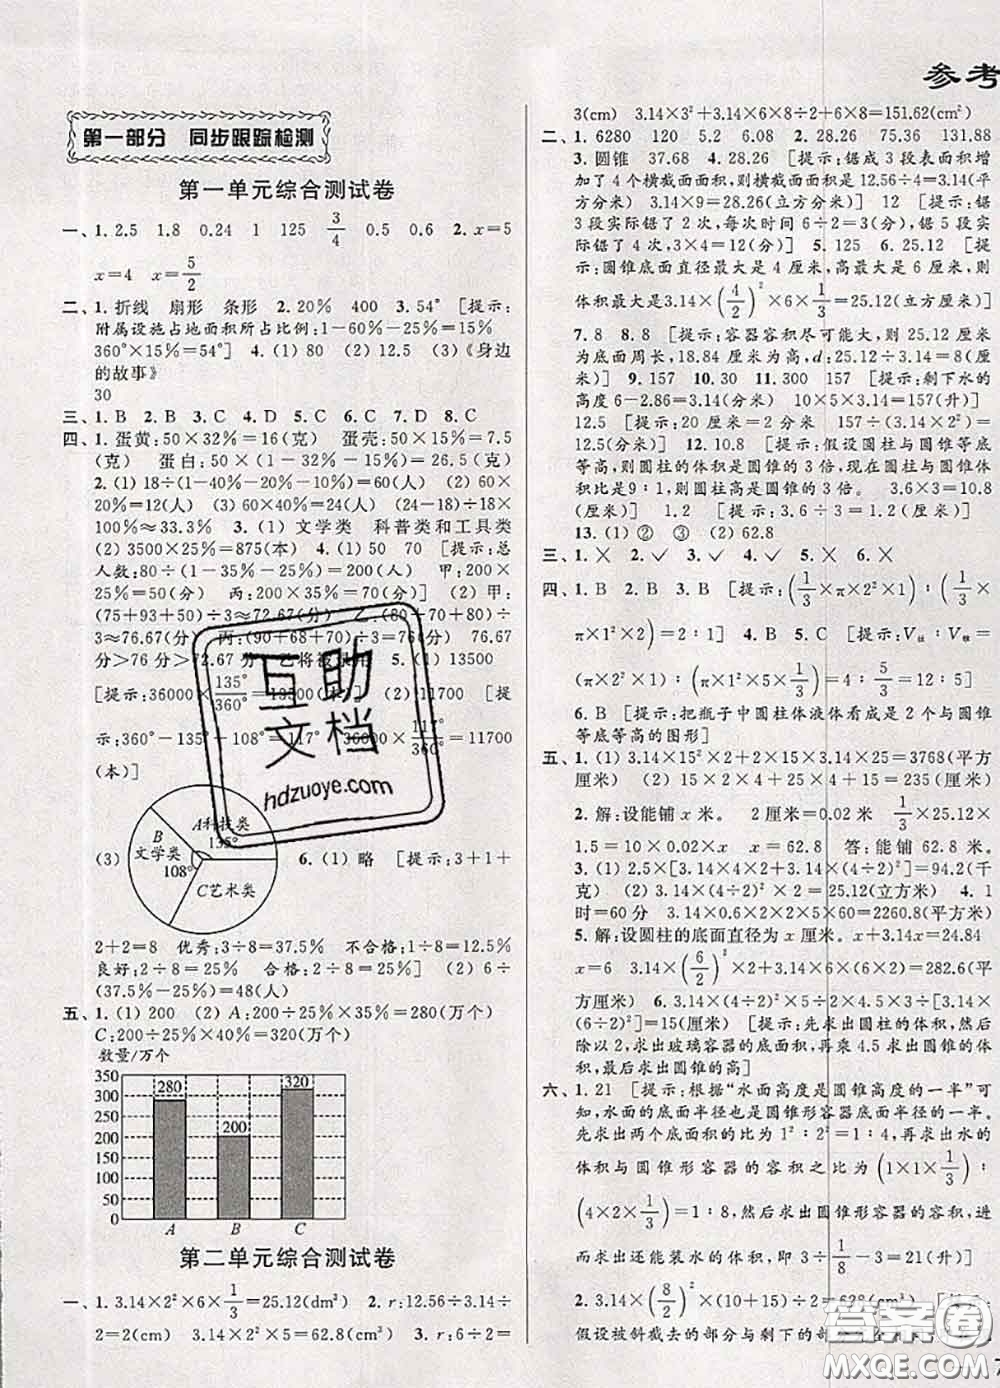 参考
第一部分 同步跟踪检测
第一单元综合测试卷
一、1. 2.5 1.8 0.24 1 125 3/4 0.5 0.6 2. x=5
x=4 x=5/2
二、1. 折线 扇形 条形 2. 20% 400 3. 54° [提示:
附属设施占地面积所占比例:1-60%-25%=15%
360°×15%=54°] 4. (1) 80 (2) 12.5 (3)《身边
的故事》
30
三、1. B 2. B 3. C 4. D 5. C 6. C 7. D 8. C
四、1. 蛋黄:50×32%=16(克) 蛋壳:50×15%=7.5
(克) 蛋白:50×(1-32%-15%)=26.5(克)
2. (1) 18÷(1-40%-20%-10%)=60(人) (2) 60×
20%=12(人) 60×40%=24(人) (24-18)÷18×
100%≈33.3% 3. (1) 文学类 科普类和工具类
(2) 3500×25%=875(本) 4. (1) 50 70 [提示:总
人数:80÷(1-25%-35%)=200(人) 甲:200×
25%=50(分) 丙:200×35%=70(分)] (2) 甲:
(75+93+50)÷3≈72.67(分) 乙:(80+70+80)÷
3≈76.67(分) 丙:(90+68+70)÷3=76(分) 76.67
分>76分>72.67分 乙将被录用 5. (1) 13500
[提示:36000×135°/360°=13500(本)] (2) 11700 [提
示:360°-135°-108°=117° 36000×117°/360°=11700
(本)]
A科技类
135°
B
文学类
108°
C艺术类
(3) 6. (1) 略 [提示:3+1+
2+2=8 优秀:3÷8=37.5% 不合格:1÷8=12.5%
良好:2÷8=25% 合格:2÷8=25%] (2) 6÷
(37.5%-25%)=48(人)
五、1. (1) 200 (2) A:200÷25%×35%=280(万个)
C:200÷25%×40%=320(万个)
数量/万个
350
300
250
200
150
100
50
0
280
200
320
A B C
第二单元综合测试卷
一、1. 3.14×2²×6×1/3=25.12(dm³) 2. r:12.56÷3.14÷
2=2(cm) 3.14×2²×5=62.8(cm³) 3. r:6÷2=
3(cm) 3.14×3²+3.14×6×8÷2+6×8=151.62(cm²)
二、1. 6280 120 5.2 6.08 2. 28.26 75.36 131.88
3. 圆锥 37.68 4. 28.26 [提示:锯成3段表面积增
加了4个横截面面积,每个横截面面积是12.56÷4=3.14(平
方分米) 3.14×9=28.26(立方分米)] 12 [提示:锯
3段实际锯了2次,每次时间6÷2=3(分),锯5段实
际锯了4次,3×4=12(分)] 5. 125 6. 25.12 [提
示:圆锥底面直径最大是4厘米,高最大是6厘米,
体积最大是3.14×(4/2)²×6×1/3=25.12(立方厘米)]
7. 8 8. 8 [提示:容器容积尽可能大,则25.12厘米
为底面周长,18.84厘米为高,d:25.12÷3.14=8(厘
米)] 9. 157 10. 30 11. 300 157 [提示:剩下水的
高度6-2.86=3.14(分米) 10×5×3.14=157(升)]
12.5 [提示:20厘米=2分米 157÷(3.14×2²)=
12.5(分米)] 12. 10.8 [提示:假设圆柱与圆锥等底
等高,则圆柱的体积是圆锥的3倍,现在圆柱与圆锥体
积比是9:1,则圆柱高是圆锥的3倍。 3.6×3=10.8
(厘米)] 1.2 [提示:3.6÷3=1.2(厘米)]
13. (1) ① ② ③ (2) 62.8
三、1. × 2. ✓ 3. ✓ 4. ✓ 5. × 6. ×
四、1. B 2. B 3. B [提示:(1/3×π×2²×1):(1/3×
π×1²×2)=2:1] 4. B 5. C [提示:V柱:V锥=
(π×2²×1):(π×1²×5×1/3)=4:5/3=12:5]
6. B [提示:把瓶子中圆柱体液体看成是2个与圆锥
等底等高的图形]
五、1. (1) 3.14×15²×2+2×15×3.14×25=3768(平方
厘米) (2) 15×2×4+25×4+15=235(厘米)
2. 解:设能铺x米。 2厘米=0.02米 1/3×25.12×
1.5=10×0.02×x x=62.8 答:能铺62.8米。
3. (1) 2.5×[3.14×4×2+3.14×(4÷2)²]=94.2(千
克) (2) 3.14×(4÷2)²×2=25.12(立方米) 4. 1
时=60分 3.14×1.2×6×2×2×10×60=... 
5. 解:设圆柱的底面直径为x厘米。 x+3.14x=24.84
x=6 3.14×(6/2)²×2+3.14×6×(6×2)=282.6(平
方厘米) 6. 3.14×(4÷2)²×2×4.5×3÷[3.14×
(6÷2)²]=15(厘米) [提示:先求出圆柱的体积,然后
除以2,求出玻璃容器的底面积,再乘4.5求出圆锥的
体积,最后求出圆锥的高]
六、1. 21 [提示:根据“水面高度是圆锥高度的一半”可
知,水面的底面半径也是圆锥形容器底面半径的一半。
先求出两个底面积的比为1²:2²=1:4,再求出水的
体积与圆锥形容器的容积之比为(1×1×1/3):
(4×2×1/3)=1:8,然后求出圆锥形容器的容积,进
而求出还能装水的体积,即3÷1/8-3=21(升)]
2. 3.14×(8/2)²×(10+15)÷2=628(立方厘米) [提示:
假设被斜截去的部分与剩下的部分
互助文档
hdzuoye.com
答案圈
MXQE.COM